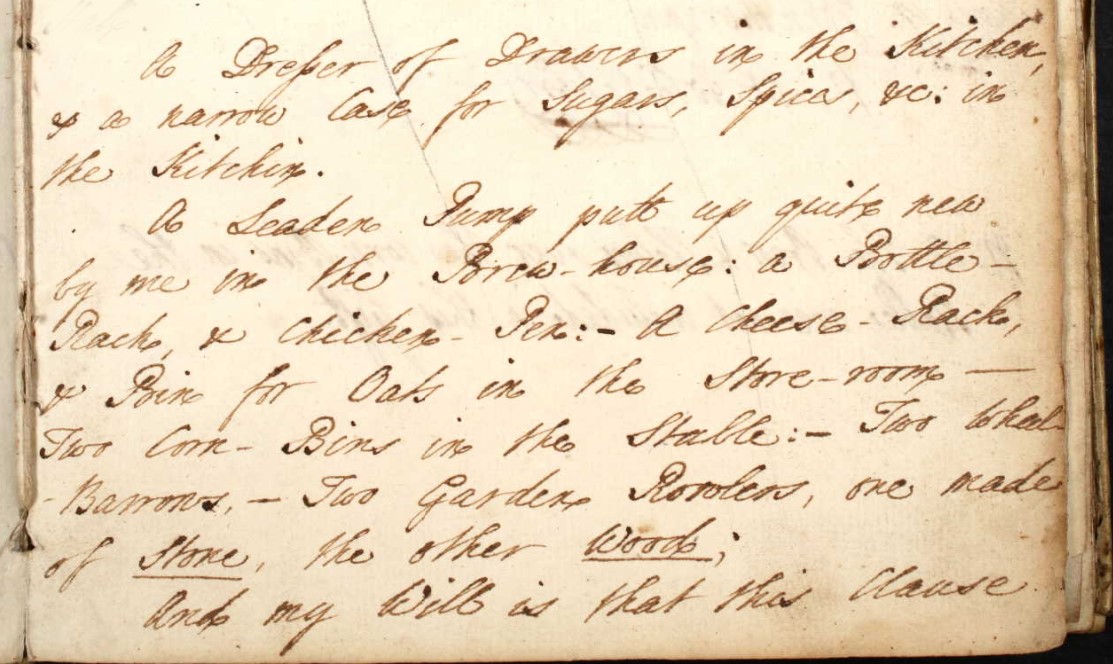 A Dresser of Drawers in the Kitchen,
& a narrow Case for Sugars, Spices, &c: in
the Kitchin.
A Leaden Pump putt up quite new
by me in the Brew-house: a Bottle-
Rack, & Chicken-Pen:- A Cheese-Rack,
& Bin for Oats in the Store-room —
Two Corn-Bins in the Stable:- Two Wheel-
-Barrows, - Two Garden Rowlers, one made
of Stone, the other Wood;
And my Will is that this Clause